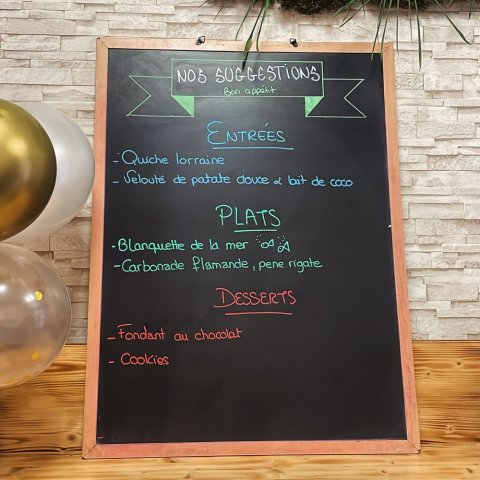 NOS SUGGESTIONS
Bon appétit
ENTRÉES
- Quiche lorraine
- Velouté de patate douce & lait de coco
PLATS
- Blanquette de la mer
- Carbonade flamande, pene rigate
DESSERTS
- Fondant au chocolat
- Cookies